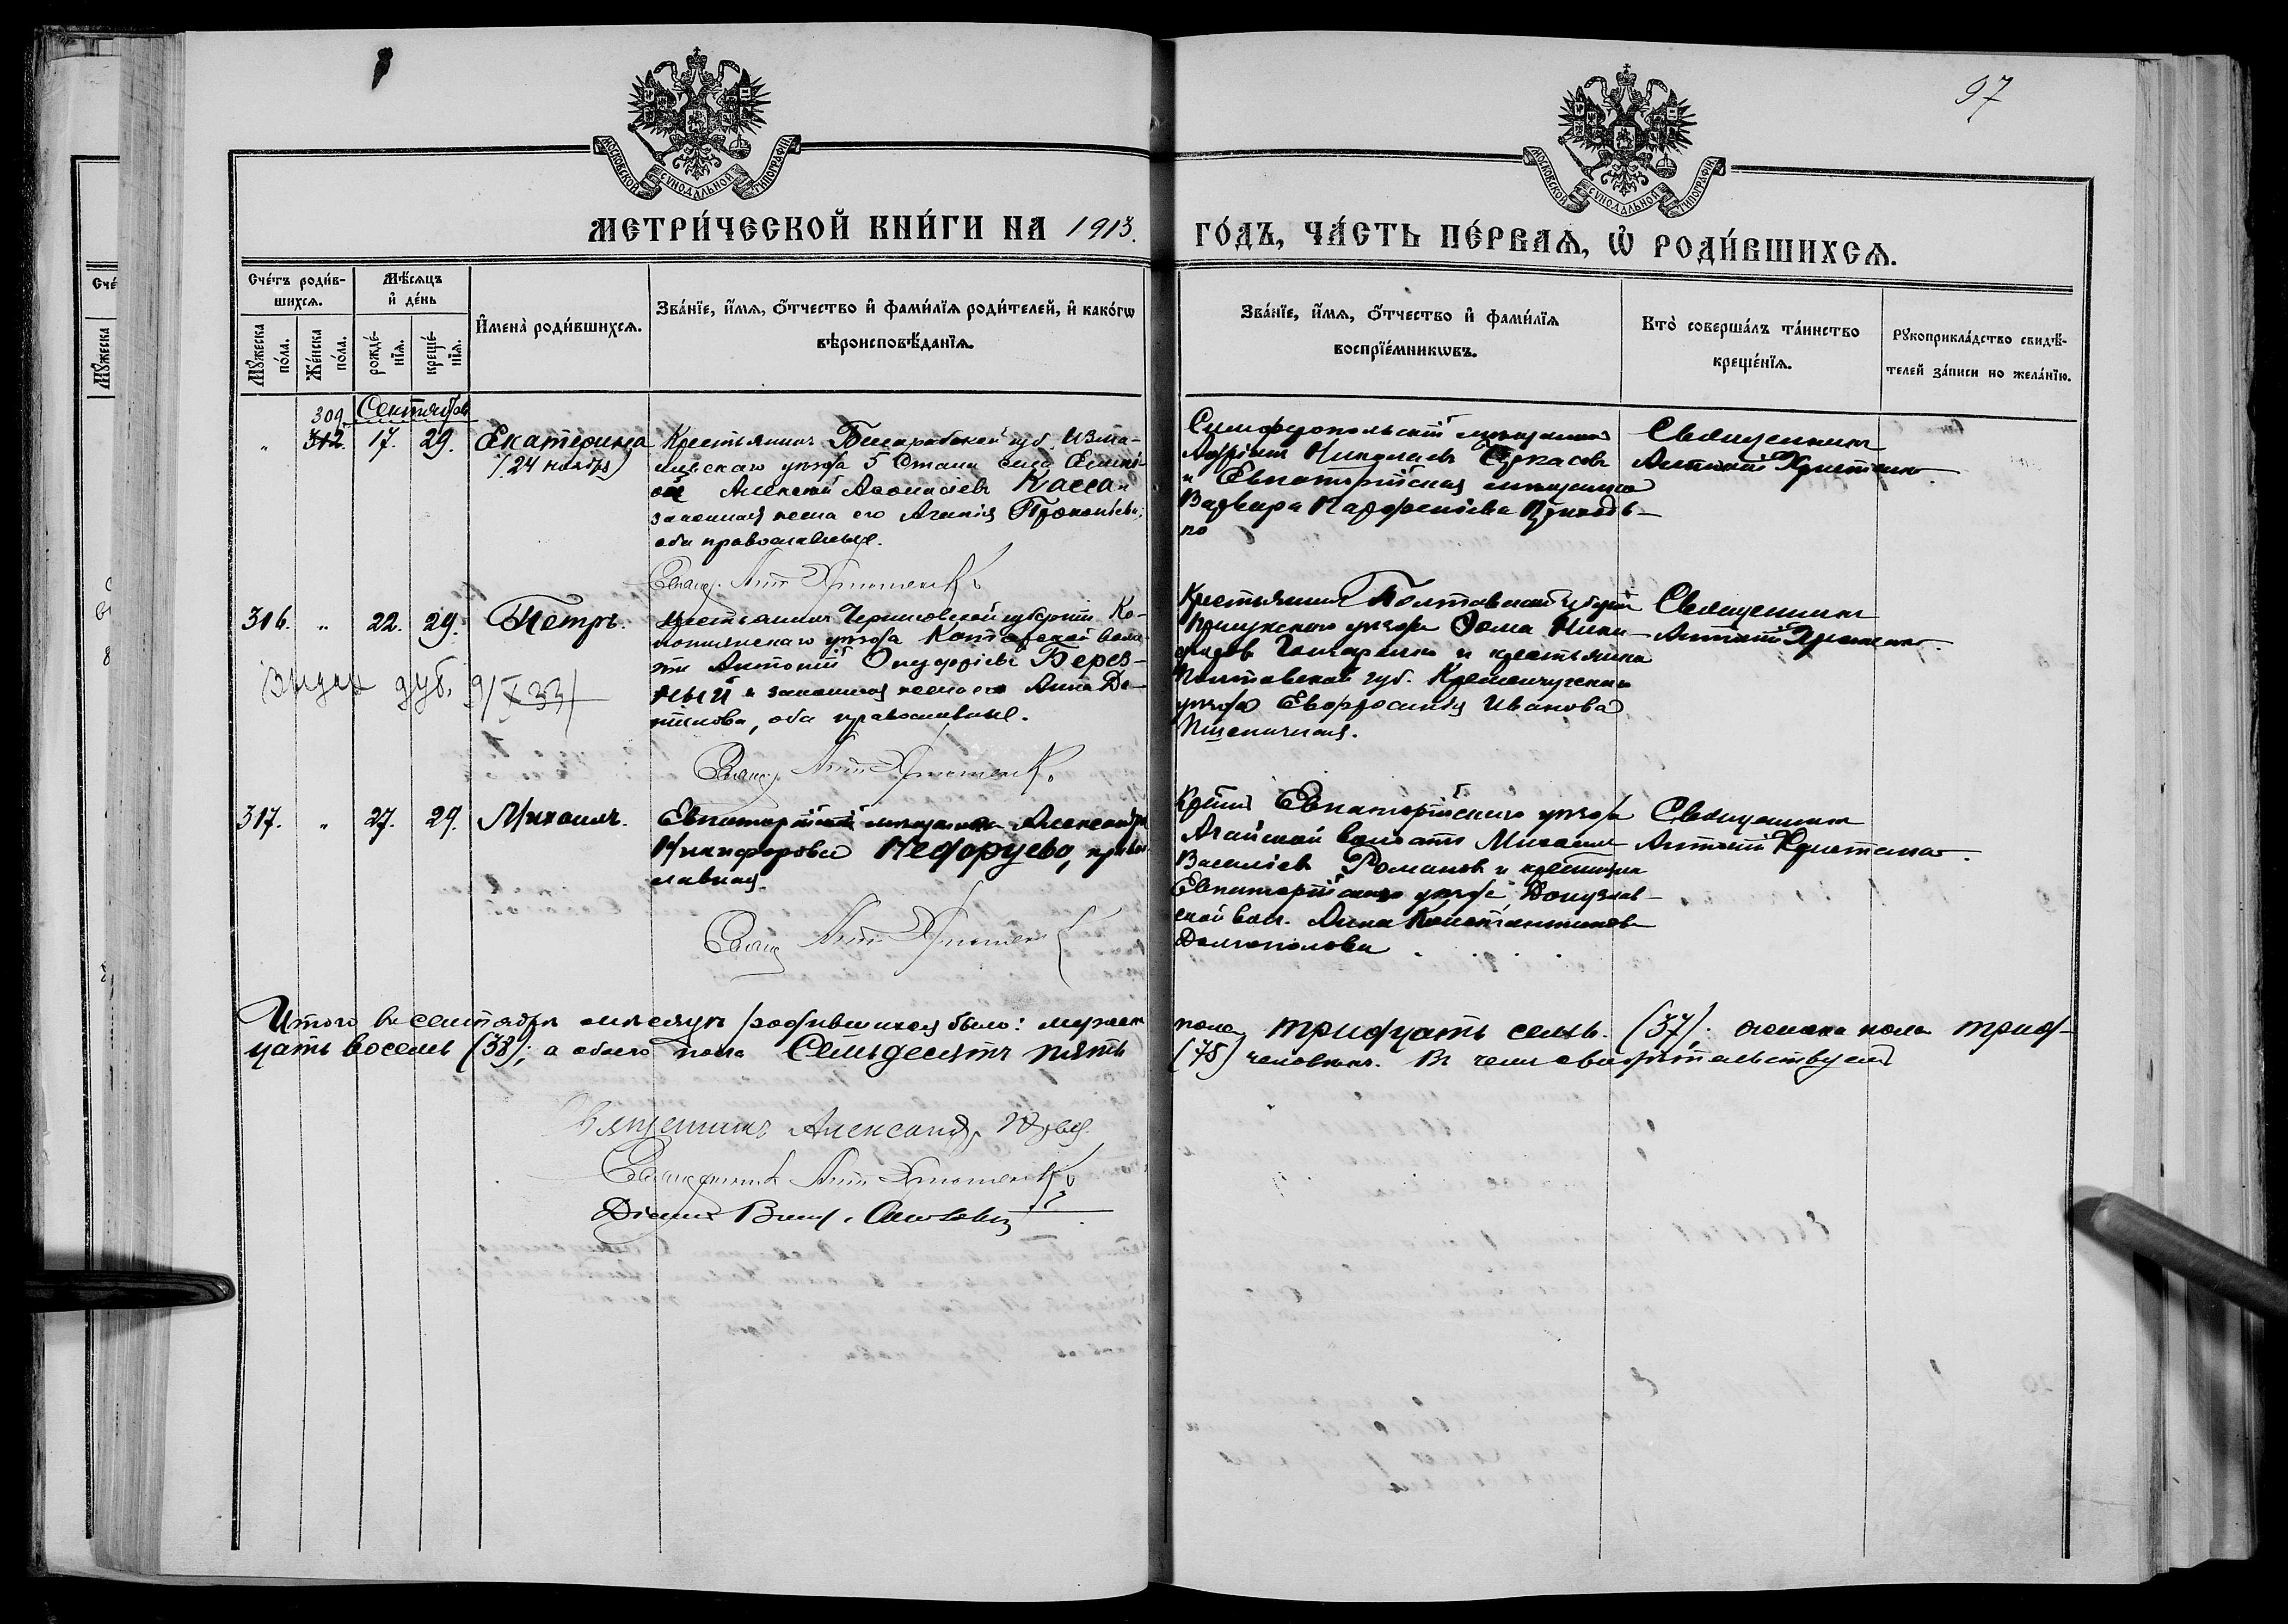 97
МОСКОВСКОЙ СѴНОДАЛЬНОЙ ТИПОГРАФІИ
МОСКОВСКОЙ СѴНОДАЛЬНОЙ ТИПОГРАФІИ
МЕТРИ́ЧЕСКОЙ КНИ́ГИ НА 1913.
ГО́ДЪ, ЧА́СТЬ ПЕ́РВАѦ, Ѽ РОДИ́ВШИХСѦ.
Сче́тъ роди́в-
шихсѧ.
Мꙋ́жеска по́ла.
Же́нска по́ла.
Мѣ́сѧцъ
и҆ де́нь
рожде́-
нїѧ.
креще́-
нїѧ.
И҆мена̀ роди́вшихсѧ.
Зва́нїе, и҆́мѧ, ѻ҆́тчество и҆ фами́лїѧ роди́телей, и҆ како́гѡ
вѣроисповѣ́данїѧ.
Зва́нїе, и҆́мѧ, ѻ҆́тчество и҆ фами́лїѧ
воспрїе́мникѡвъ.
Кто̀ соверша́лъ та́инство
креще́нїѧ.
Рꙋкоприкла́дство свидѣ́-
телей за́писи по жела́нїю.
Сентябрь
309
" 312. 17. 29. Екатерина
(24 ноября)
Крестьянинъ Бессарабской губ. Измаи-
льскаго уѣзда 5 Стана села
Алексѣй Аѳонасіевъ Касса и
законная жена его Агапія Прокопіева,
оба православные.
Свящ. Ант Христенко
Симферопольскій мѣщанинъ
Николаевъ Черкасовъ
и Евпаторійская мѣщанка
Варвара Парфеніева Приходь-
ко
Священникъ
Антоній Христенко.
316. " 22. 29. Петръ.
Крестьянинъ Черниговской губерніи Ко-
нотопскаго уѣзда волос-
ти Антоній Онуфріевъ Берез-
ный и законная жена его Анна Да-
нилова, оба православные.
Свящ. Ант Христенко
выдан дуб. 9/X 33
Крестьянинъ Полтавской губерніи
Прилукскаго уѣзда Ѳома Ники-
форовъ Гончаренко и крестьянка
Полтавской губ. Кременчугскаго
уѣзда Евфросинія Иванова
Пшеничная.
Священникъ
Антоній Христенко.
317. " 27. 29. Михаилъ.
Евпаторійская мѣщанка Александра
Никифорова Недоруева, право
славная.
Свящ Ант Христенко
Крест. Евпаторійскаго уѣзда
Агайской волости Михаилъ
Василіевъ Романовъ и крестьянка
Евпаторійскаго уѣзда, Донузлав-
ской вол. Анна Константинова
Долгополова
Священникъ
Антоній Христенко.
Итого въ сентябрѣ мѣсяцѣ родившихся было: мужеска
пола тридцать семь (37); женска пола трид-
цать восемь (38); а обоего пола Семьдесятъ пять
(75) человѣкъ. Въ чемъ свидѣтельствуемъ
Священникъ Александръ
Священникъ Ант Христенко